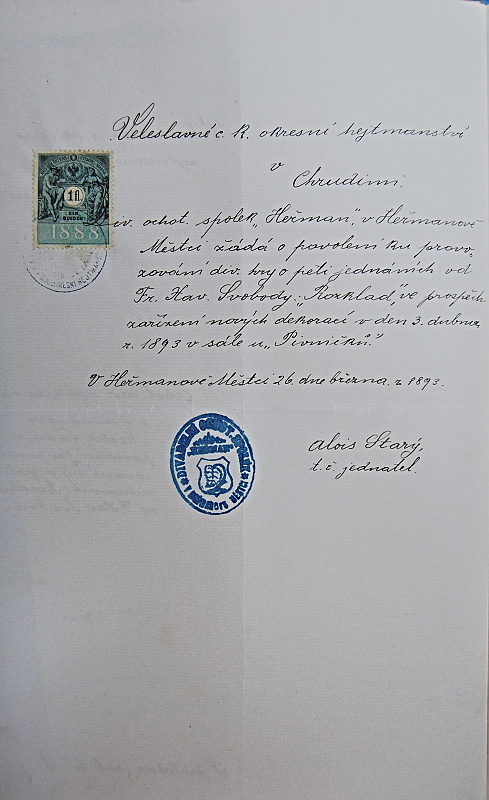 Veleslavné c. k. okresní hejtmanství
v
Chrudimi.
1 fl.
EIN
GULDEN
1888
div. ochot. spolek „Heřman“ v Heřmanově
Městci žádá o povolení ku provo-
zování div. hry o pěti jednáních od
Fr. Xav. Svobody „Rozklad“, ve prospěch
zařízení nových dekorací v den 3. dubna
r. 1893 v sále u „Pivničků.“
V Heřmanově Městci 26. dne března r. 1893.
Alois Starý,
t. č. jednatel.
DIVADELNÍ OCHOT. SPOLEK